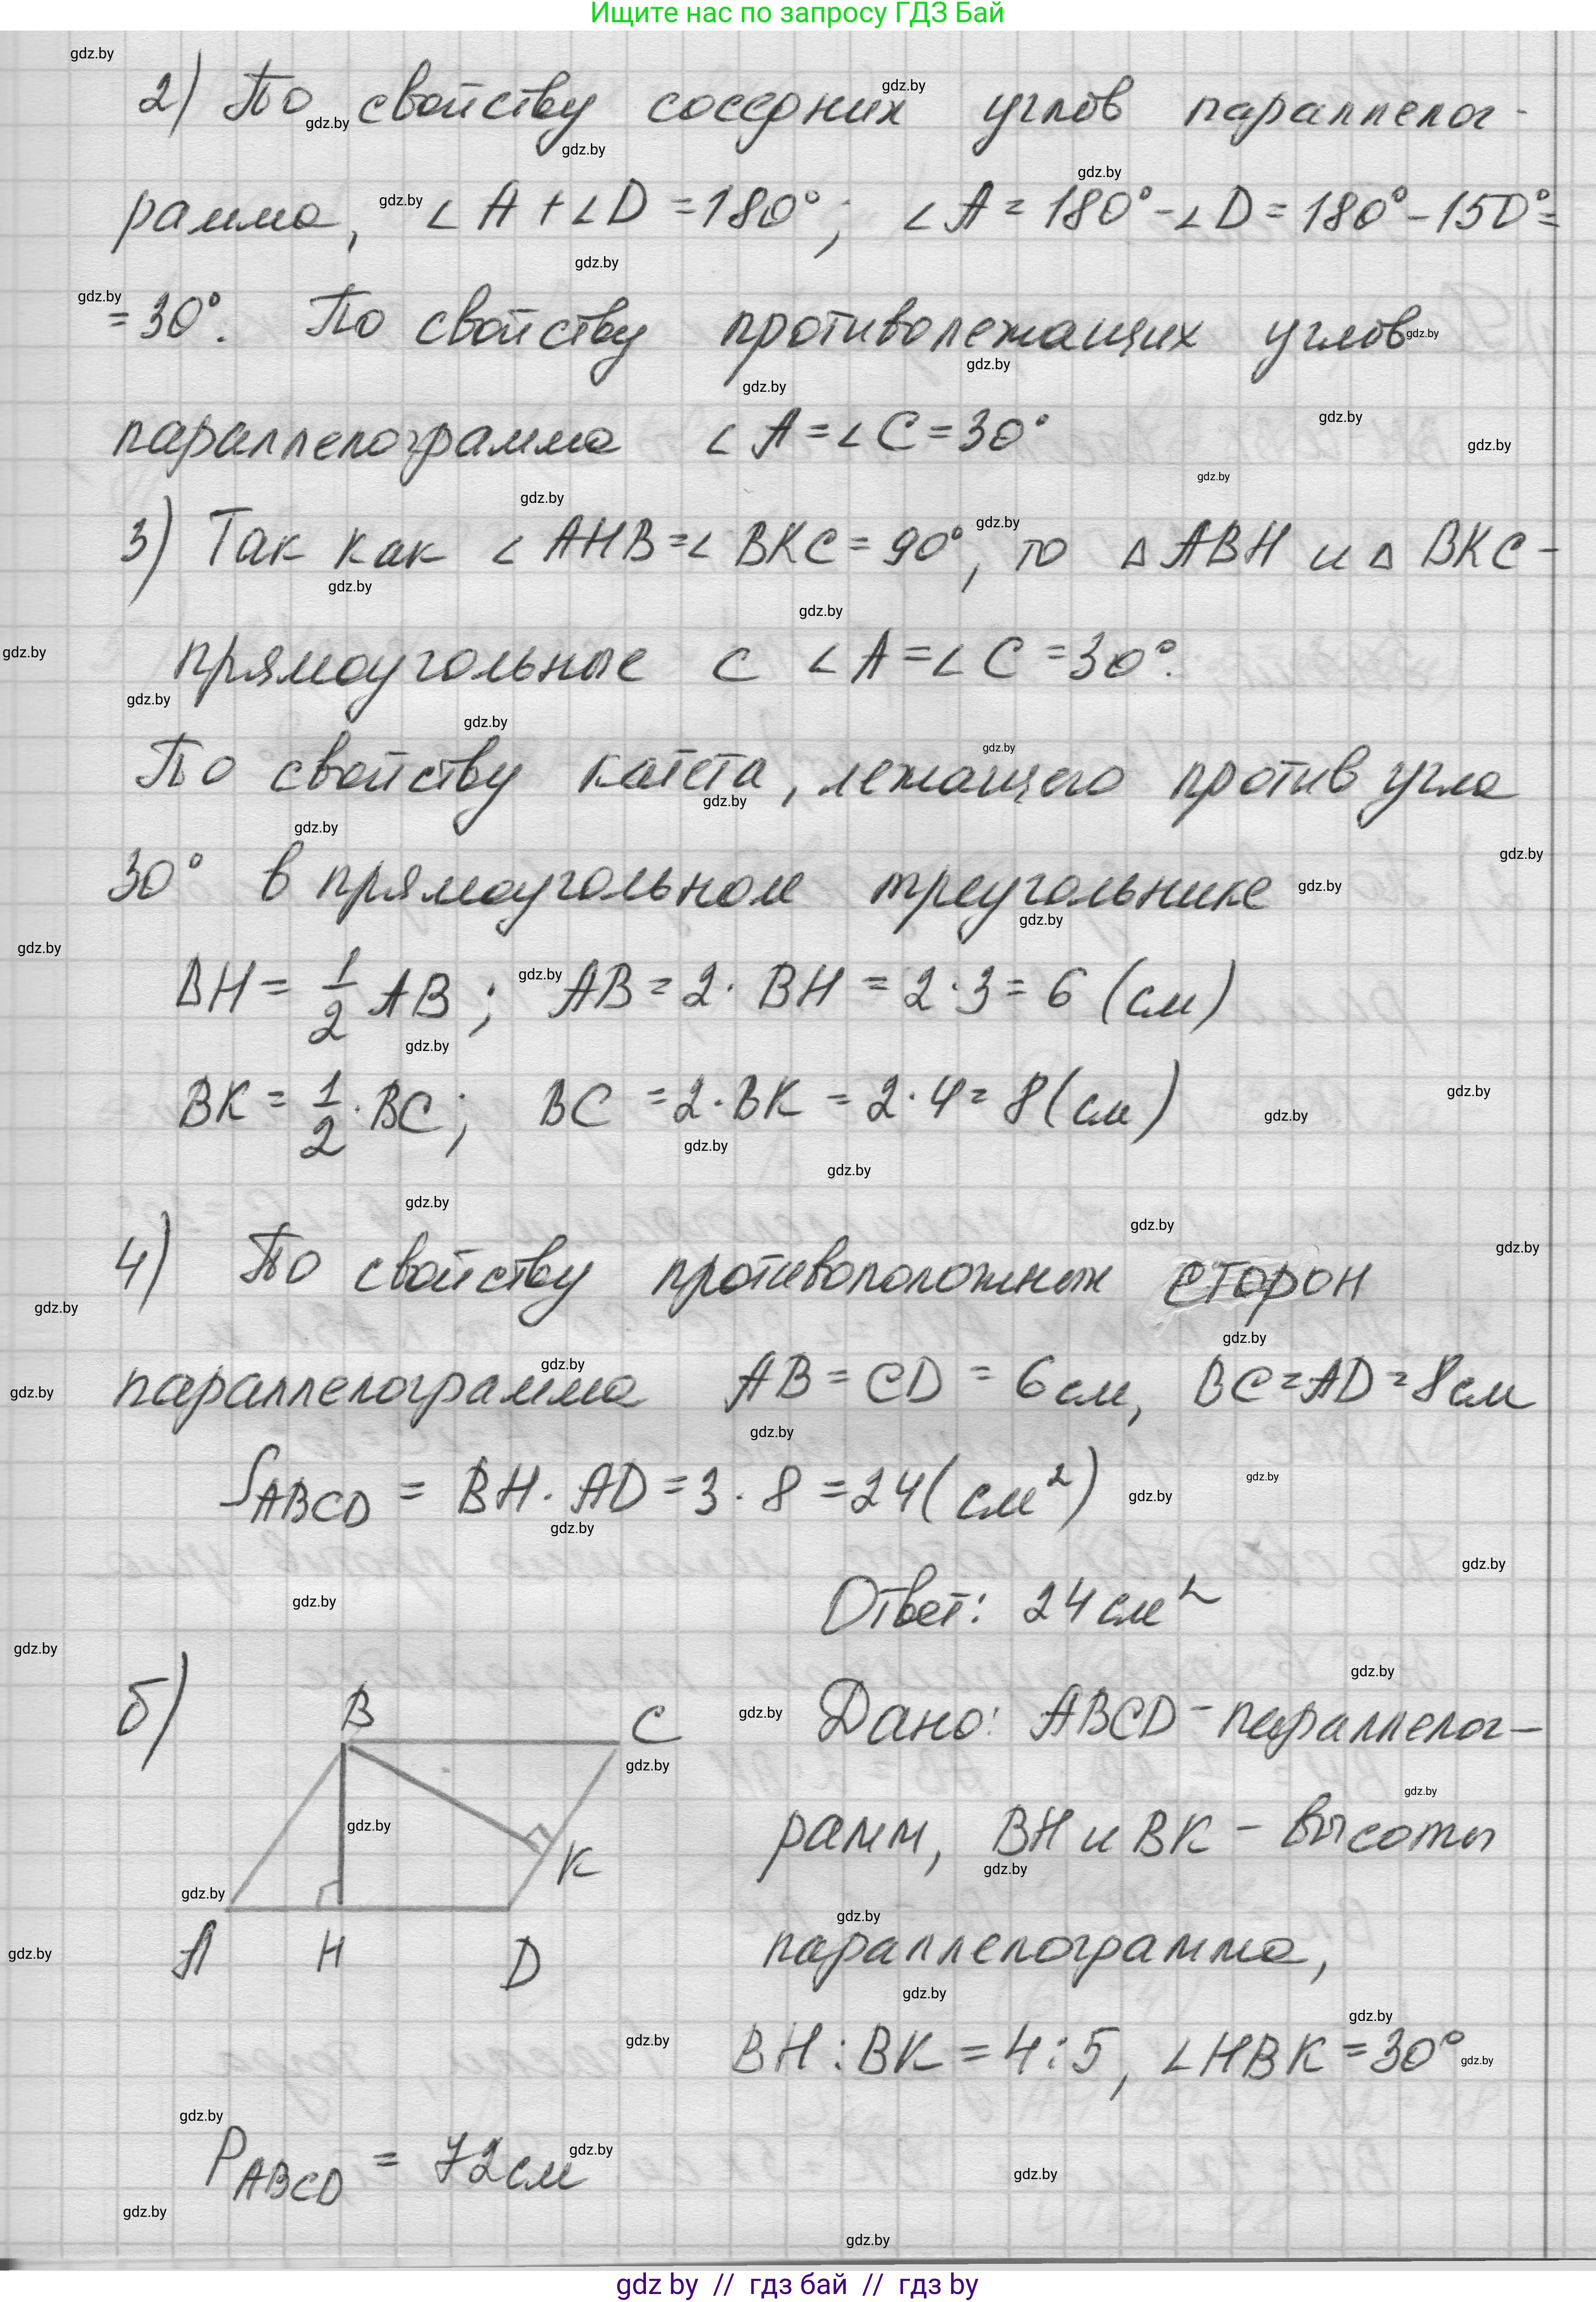 Ищите нас по запросу ГДЗ Бай
2) По свойству соседних углов параллелог-
рамма, ∠A+∠D=180°; ∠A=180°-∠D=180°-150°=
=30°. По свойству противолежащих углов
параллелограмма ∠A=∠C=30°
3) Так как ∠AHB=∠BKC=90°, то △ABH и △BKC-
прямоугольные с ∠A=∠C=30°.
По свойству катета, лежащего против угла
30° в прямоугольном треугольнике
BH=1/2 AB; AB=2·BH=2·3=6 (см)
BK=1/2·BC; BC=2·BK=2·4=8(см)
4) По свойству противоположных сторон
параллелограмма AB=CD=6см, BC=AD=8см
S_ABCD = BH·AD=3·8=24(см²)
Ответ: 24см²
б) B C K A H D
Дано: ABCD-параллелог-
рамм, BH и BK - высоты
параллелограмма,
BH:BK=4:5, ∠HBK=30°
P_ABCD = 72см
gdz by // гдз бай // гдз by